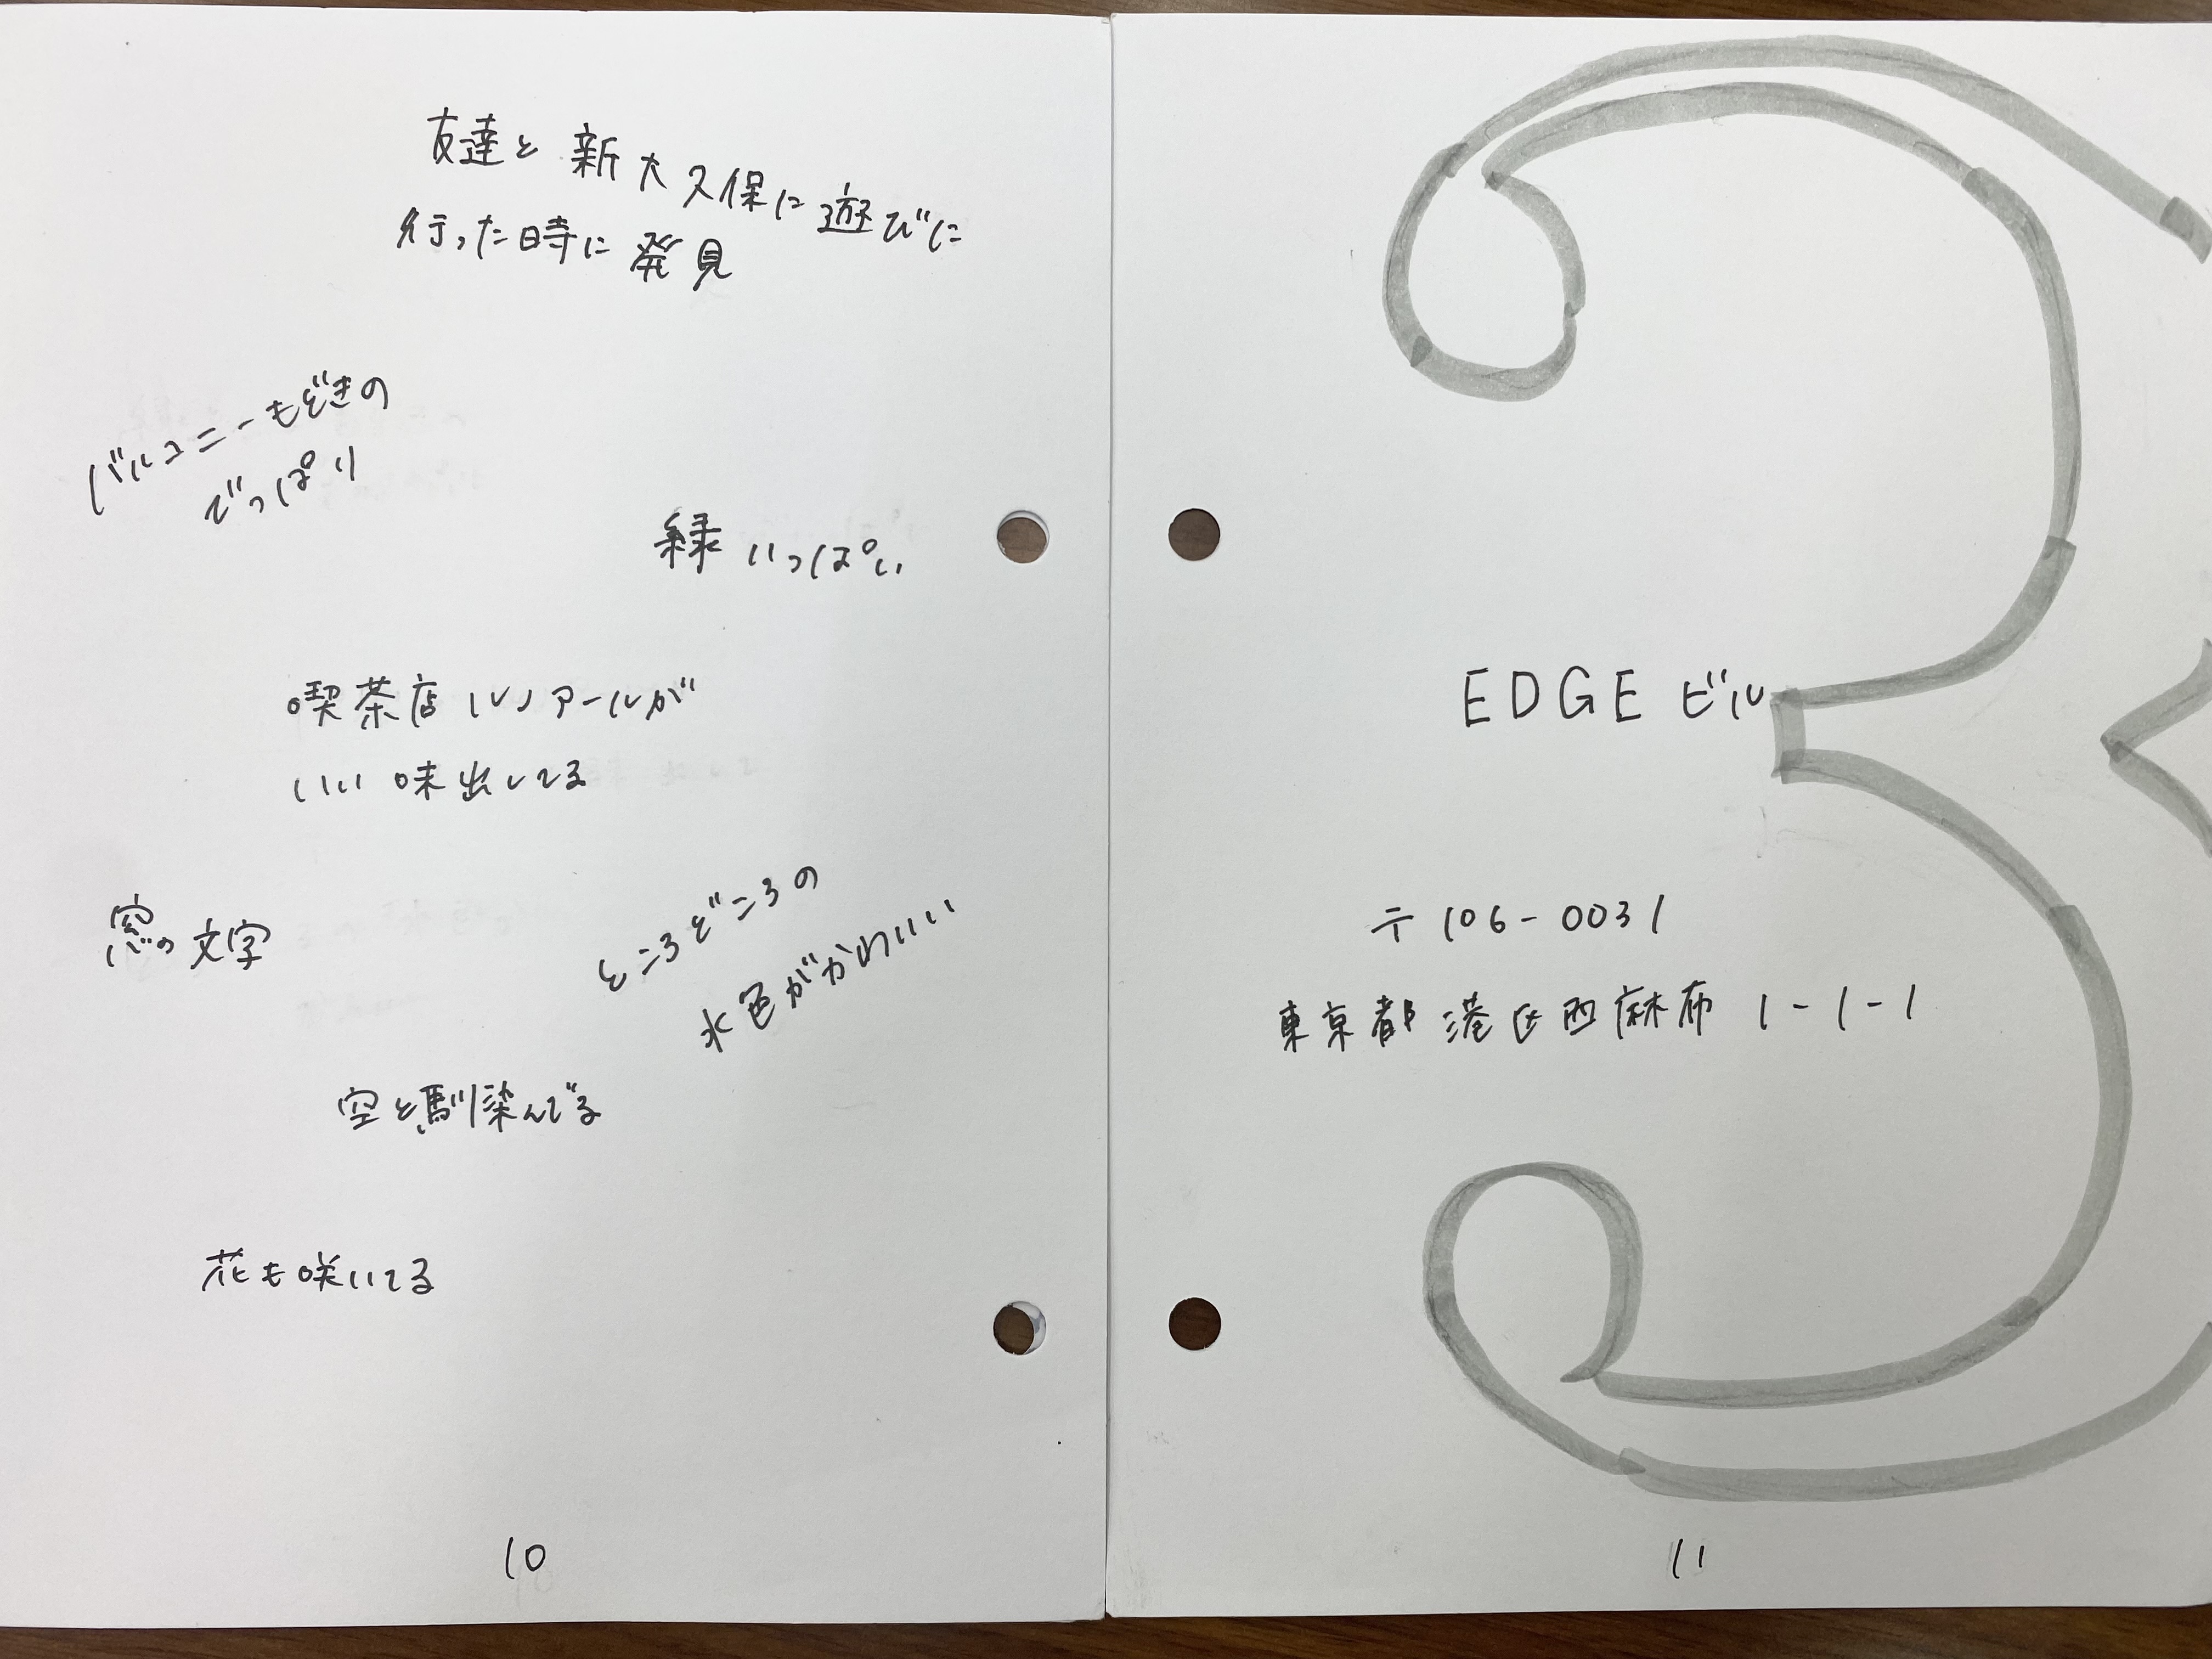 友達と新大久保に遊びに
行った時に発見
バルコニーもどきの
でっぱり
緑いっぱい
喫茶店ルノアールが
いい味出してる
窓の文字
ところどころの
水色がかわいい
空と馴染んでる
花も咲いてる
10
3
EDGE ビル
〒106-0031
東京都港区西麻布 1-1-1
11